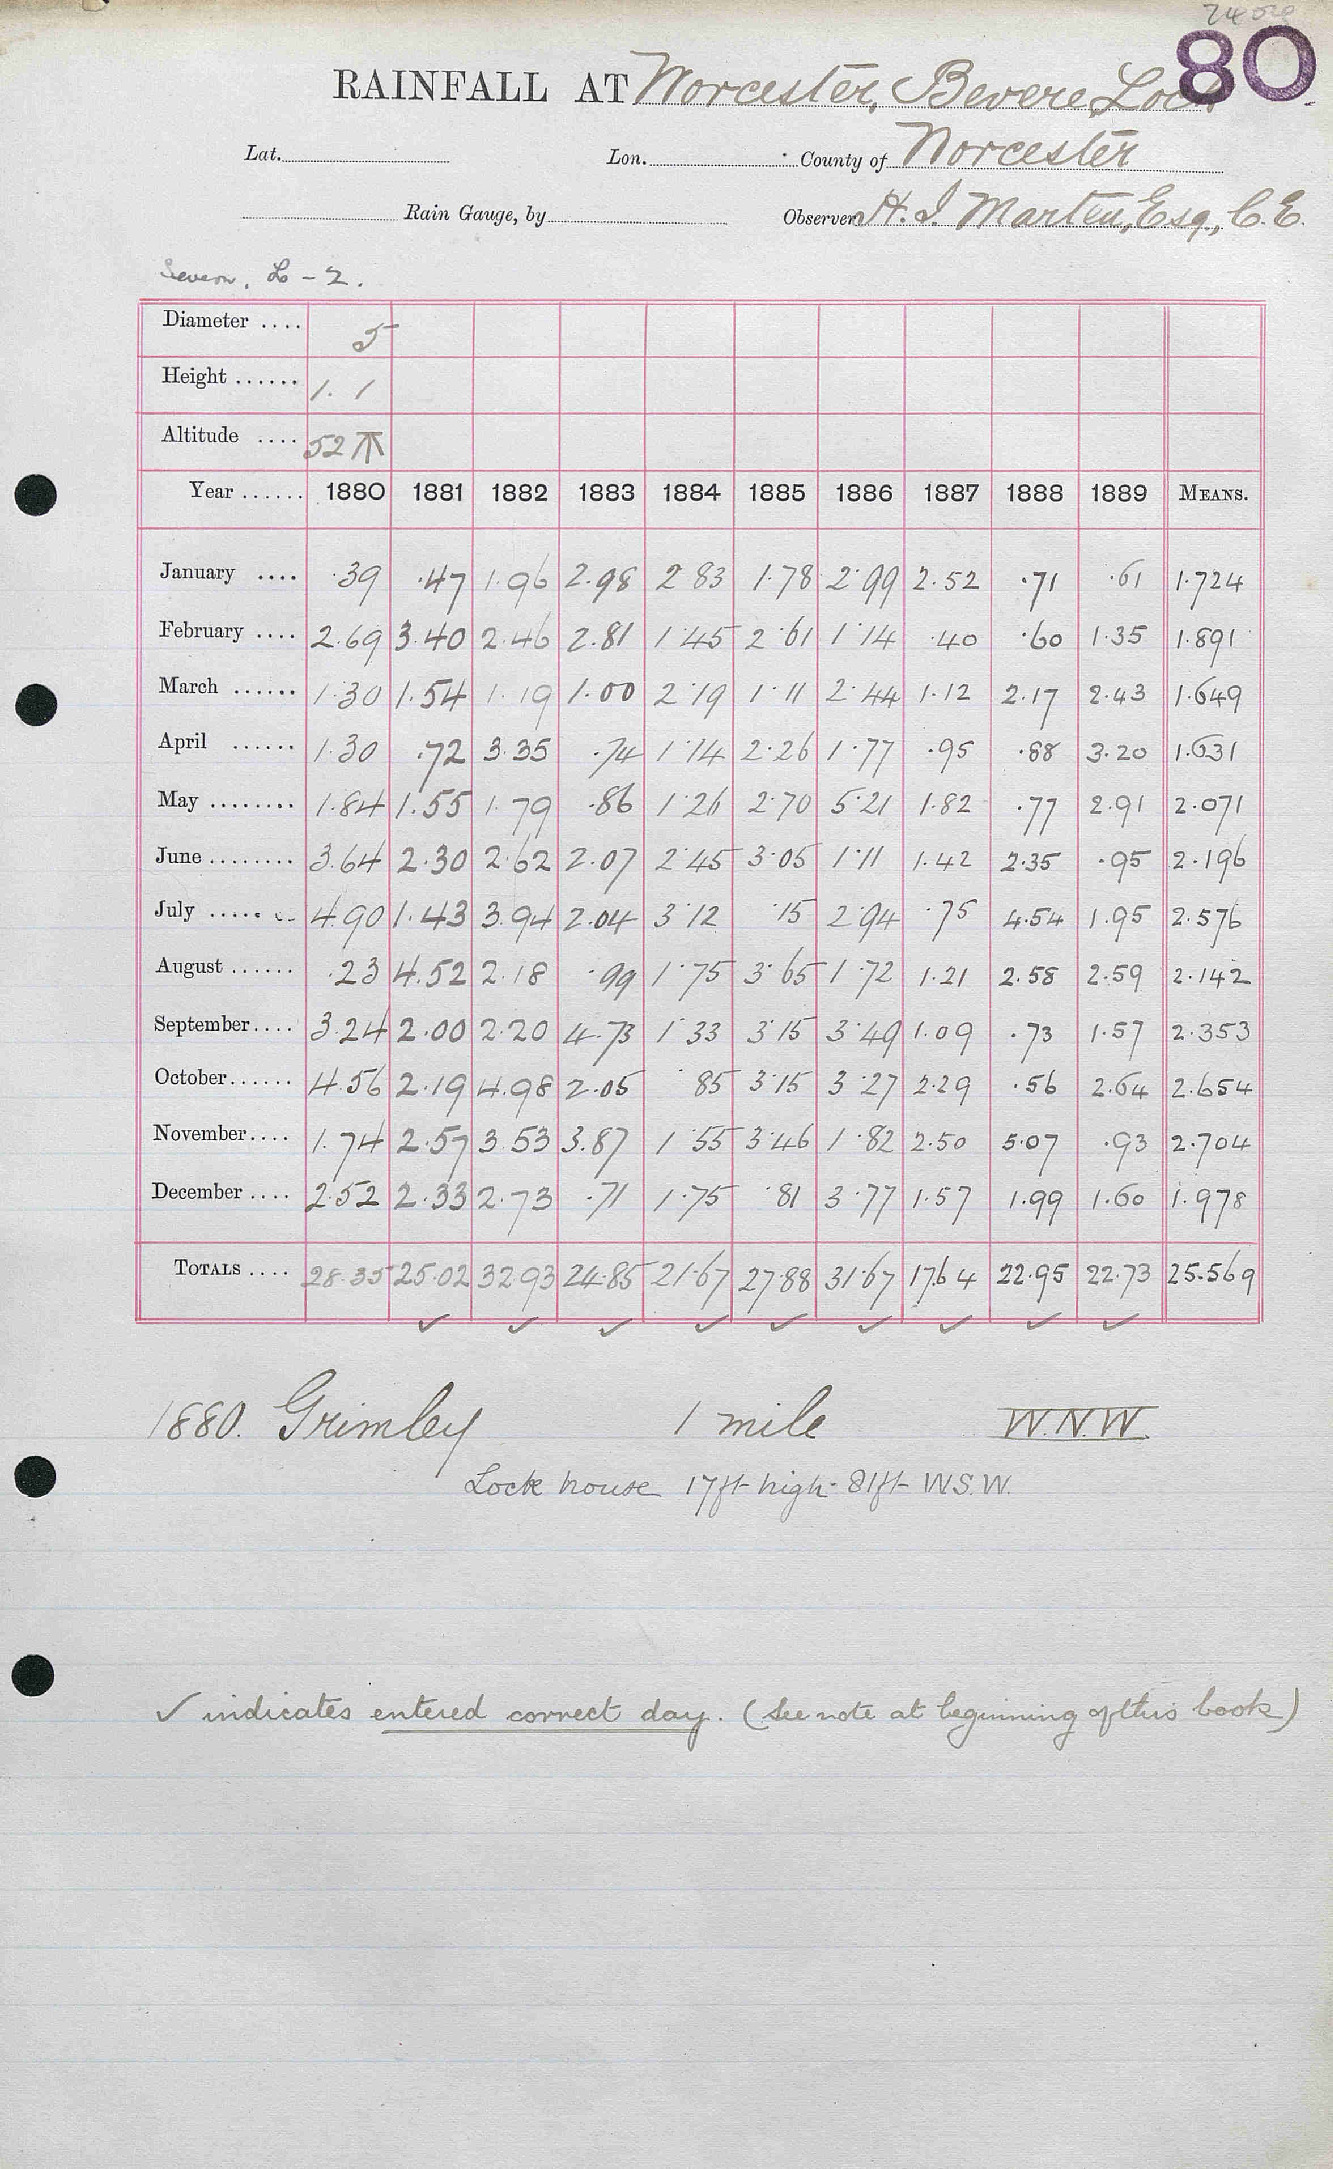 80
RAINFALL AT Worcester, Bevere Lock
Lat. Lon. County of Worcester
Rain Gauge, by Observer H. J. Marten, Esq., C.E.
Severn. L-2.
Diameter .... 5
Height ...... 1. 1
Altitude .... 52
Year ...... 1880 1881 1882 1883 1884 1885 1886 1887 1888 1889 MEANS.
January .... .39 .47 1.96 2.98 2.83 1.78 2.99 2.52 .71 .61 1.724
February .... 2.69 3.40 2.46 2.81 1.45 2.61 1.14 .40 .60 1.35 1.891
March ...... 1.30 1.54 1.19 1.00 2.19 1.11 2.44 1.12 2.17 2.43 1.649
April ...... 1.30 .72 3.35 .74 1.14 2.26 1.77 .95 .88 3.20 1.631
May ........ 1.84 1.55 1.79 .86 1.26 2.70 5.21 1.82 .77 2.91 2.071
June ........ 3.64 2.30 2.62 2.07 2.45 3.05 1.11 1.42 2.35 .95 2.196
July ........ 4.90 1.43 3.94 2.04 3.12 .15 2.94 .75 4.54 1.95 2.576
August ...... .23 4.52 2.18 .99 1.75 3.65 1.72 1.21 2.58 2.59 2.142
September.... 3.24 2.00 2.20 4.73 1.33 3.15 3.49 1.09 .73 1.57 2.353
October...... 4.56 2.19 4.98 2.05 .85 3.15 3.27 2.29 .56 2.64 2.654
November.... 1.74 2.57 3.53 3.87 1.55 3.46 1.82 2.50 5.07 .93 2.704
December .... 2.52 2.33 2.73 .71 1.75 .81 3.77 1.57 1.99 1.60 1.978
TOTALS .... 28.35 25.02 32.93 24.85 21.67 27.88 31.67 17.64 22.95 22.73 25.569
✓ ✓ ✓ ✓ ✓ ✓ ✓ ✓ ✓
1880. Grimley 1 mile W.N.W.
Lock house 17ft high - 81ft W.S.W.
✓ indicates entered correct day. (See note at beginning of this book)